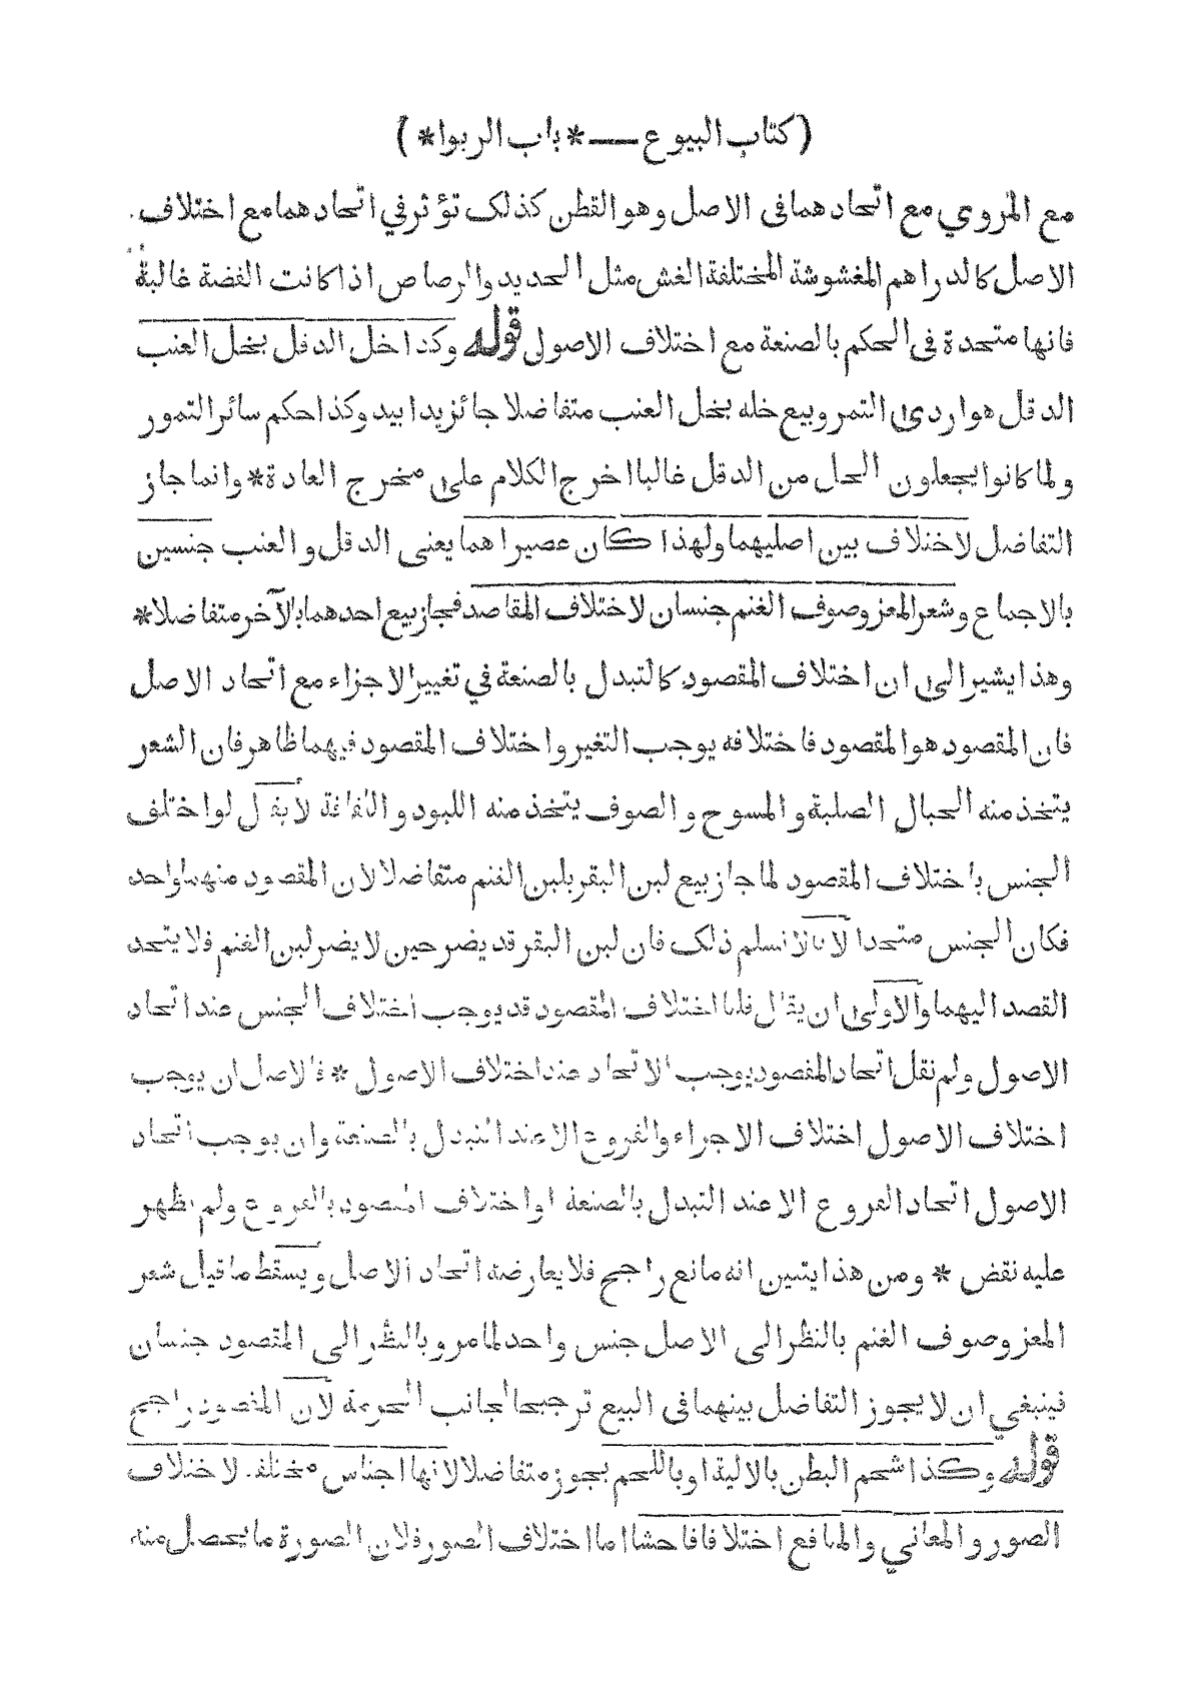 (كتاب البيوع — * باب الربوا * )
مع المروي مع اتحادهما فى الاصل وهو القطن كذلك تؤثر في اتحادهما مع اختلاف
الاصل كالدراهم المغشوشة المختلفة الغش مثل الحديد والرصاص اذا كانت الفضة غالبة
فانها متحدة فى الحكم بالصنعة مع اختلاف الاصول قوله وكذا خل الدقل بخل العنب
الدقل هو اردى التمر وبيع خله بخل العنب متفاضلا جائز يدا بيد وكذا حكم سائر التمور
ولما كانوا يجعلون الخل من الدقل غالبا اخرج الكلام على مخرج العادة * وانما جاز
التفاضل لاختلاف بين اصليهما ولهذا كان عصيراهما يعنى الدقل والعنب جنسين
بالاجماع وشعر المعز وصوف الغنم جنسان لاختلاف المقاصد فجاز بيع احدهما بالآخر متفاضلا *
وهذا يشير الى ان اختلاف المقصود كالتبدل بالصنعة في تغيير الاجزاء مع اتحاد الاصل
فان المقصود هو المقصود فاختلافه يوجب التغير واختلاف المقصود فيهما ظاهر فان الشعر
يتخذ منه الحبال الصلبة والمسوح والصوف يتخذ منه اللبود واللفافة لا يقال لو اختلف
الجنس باختلاف المقصود لما جاز بيع لبن البقر بلبن الغنم متفاضلا لان المقصود منهما واحد
فكان الجنس متحدا لانا لا نسلم ذلك فان لبن البقر قد يضر حين لا يضر لبن الغنم فلا يتحد
القصد اليهما والاولى ان يقال قلنا اختلاف المقصود قد يوجب اختلاف الجنس عند اتحاد
الاصول ولم نقل اتحاد المقصود يوجب الاتحاد عند اختلاف الاصول * فالاصل ان يوجب
اختلاف الاصول اختلاف الاجزاء والفروع الا عند التبدل بالصنعة وان يوجب اتحاد
الاصول اتحاد الفروع الا عند التبدل بالصنعة او اختلاف المقصود بالفروع ولم يظهر
عليه نقض * ومن هذا يتبين انه مانع راجح فلا يعارضه اتحاد الاصل ويسقط ما قيل شعر
المعز وصوف الغنم بالنظر الى الاصل جنس واحد لما مر وبالنظر الى المقصود جنسان
فينبغي ان لا يجوز التفاضل بينهما فى البيع ترجيحا لجانب الحرمة لان المقصود راجح
قوله وكذا شحم البطن بالالية او باللحم يجوز متفاضلا لانها اجناس مختلفة لاختلاف
الصور والمعاني والمنافع اختلافا فاحشا اما اختلاف الصور فلان الصورة ما يحصل منه